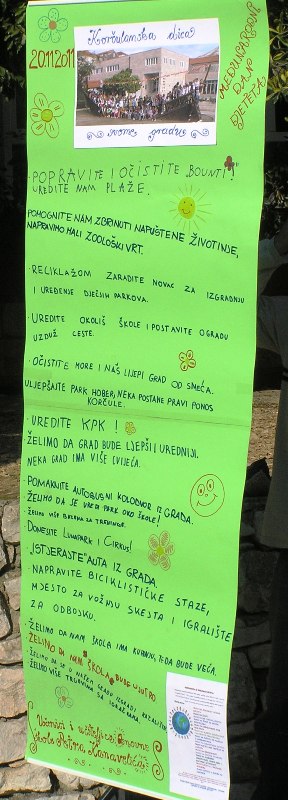 20.11.2011
Korčulanska dica
svome gradu
MEĐUNARODNI
DAN
DJETETA
-POPRAVITE I OČISTITE "BOUNTI"!
UREDITE NAM PLAŽE.
POMOGNITE NAM ZBRINUTI NAPUŠTENE ŽIVOTINJE,
NAPRAVIMO MALI ZOOLOŠKI VRT.
-RECIKLAŽOM ZARADITE NOVAC ZA IZGRADNJU
I UREĐENJE DJEČJIH PARKOVA.
-UREDITE OKOLIŠ ŠKOLE I POSTAVITE OGRADU
UZDUŽ CESTE.
-OČISTITE MORE I NAŠ LIJEPI GRAD OD SMEĆA.
ULJEPŠAJTE PARK HOBER, NEKA POSTANE PRAVI PONOS
KORČULE.
-UREDITE KPK!
-ŽELIMO DA GRAD BUDE LJEPŠI I UREDNIJI.
NEKA GRAD IMA VIŠE CVIJEĆA.
-POMAKNITE AUTOBUSNI KOLODVOR IZ GRADA.
-ŽELIMO DA SE UREDI PARK OKO ŠKOLE!
-ŽELIMO VIŠE ZA TRENINGE.
DONESITE LUNAPARK I CIRKUS!
-"ISTJERAJTE" AUTA IZ GRADA.
-NAPRAVITE BICIKLISTIČKE STAZE,
MJESTO ZA VOŽNJU SKEJTA I IGRALIŠTE
ZA ODBOJKU.
-ŽELIMO DA NAM ŠKOLA IMA KUHINJU, TE DA BUDE VEĆA.
ŽELIMO DA NAM ŠKOLA BUDE UJUTRO
ŽELIMO DA SE U NAŠEM GRADU IZGRADI KAZALIŠTE
ŽELIMO VIŠE TRGOVINA SA IGRAČKAMA
Učenici i učitelji Osnovne
škole Petra Kanavelića